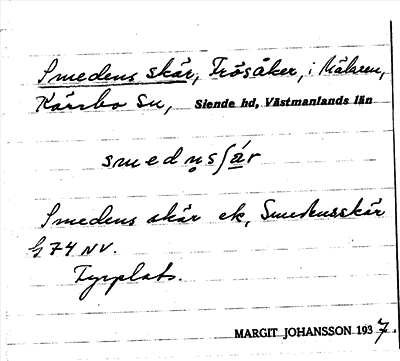 Smedens skär, Frösåker, i Mälaren,
Kärrbo sn, Siende hd, Västmanlands län
smedn̥sʃä́r
Smedens skär ek, Smedensskär
G 74 NV.
Fyrplats.
MARGIT JOHANSSON 1937.